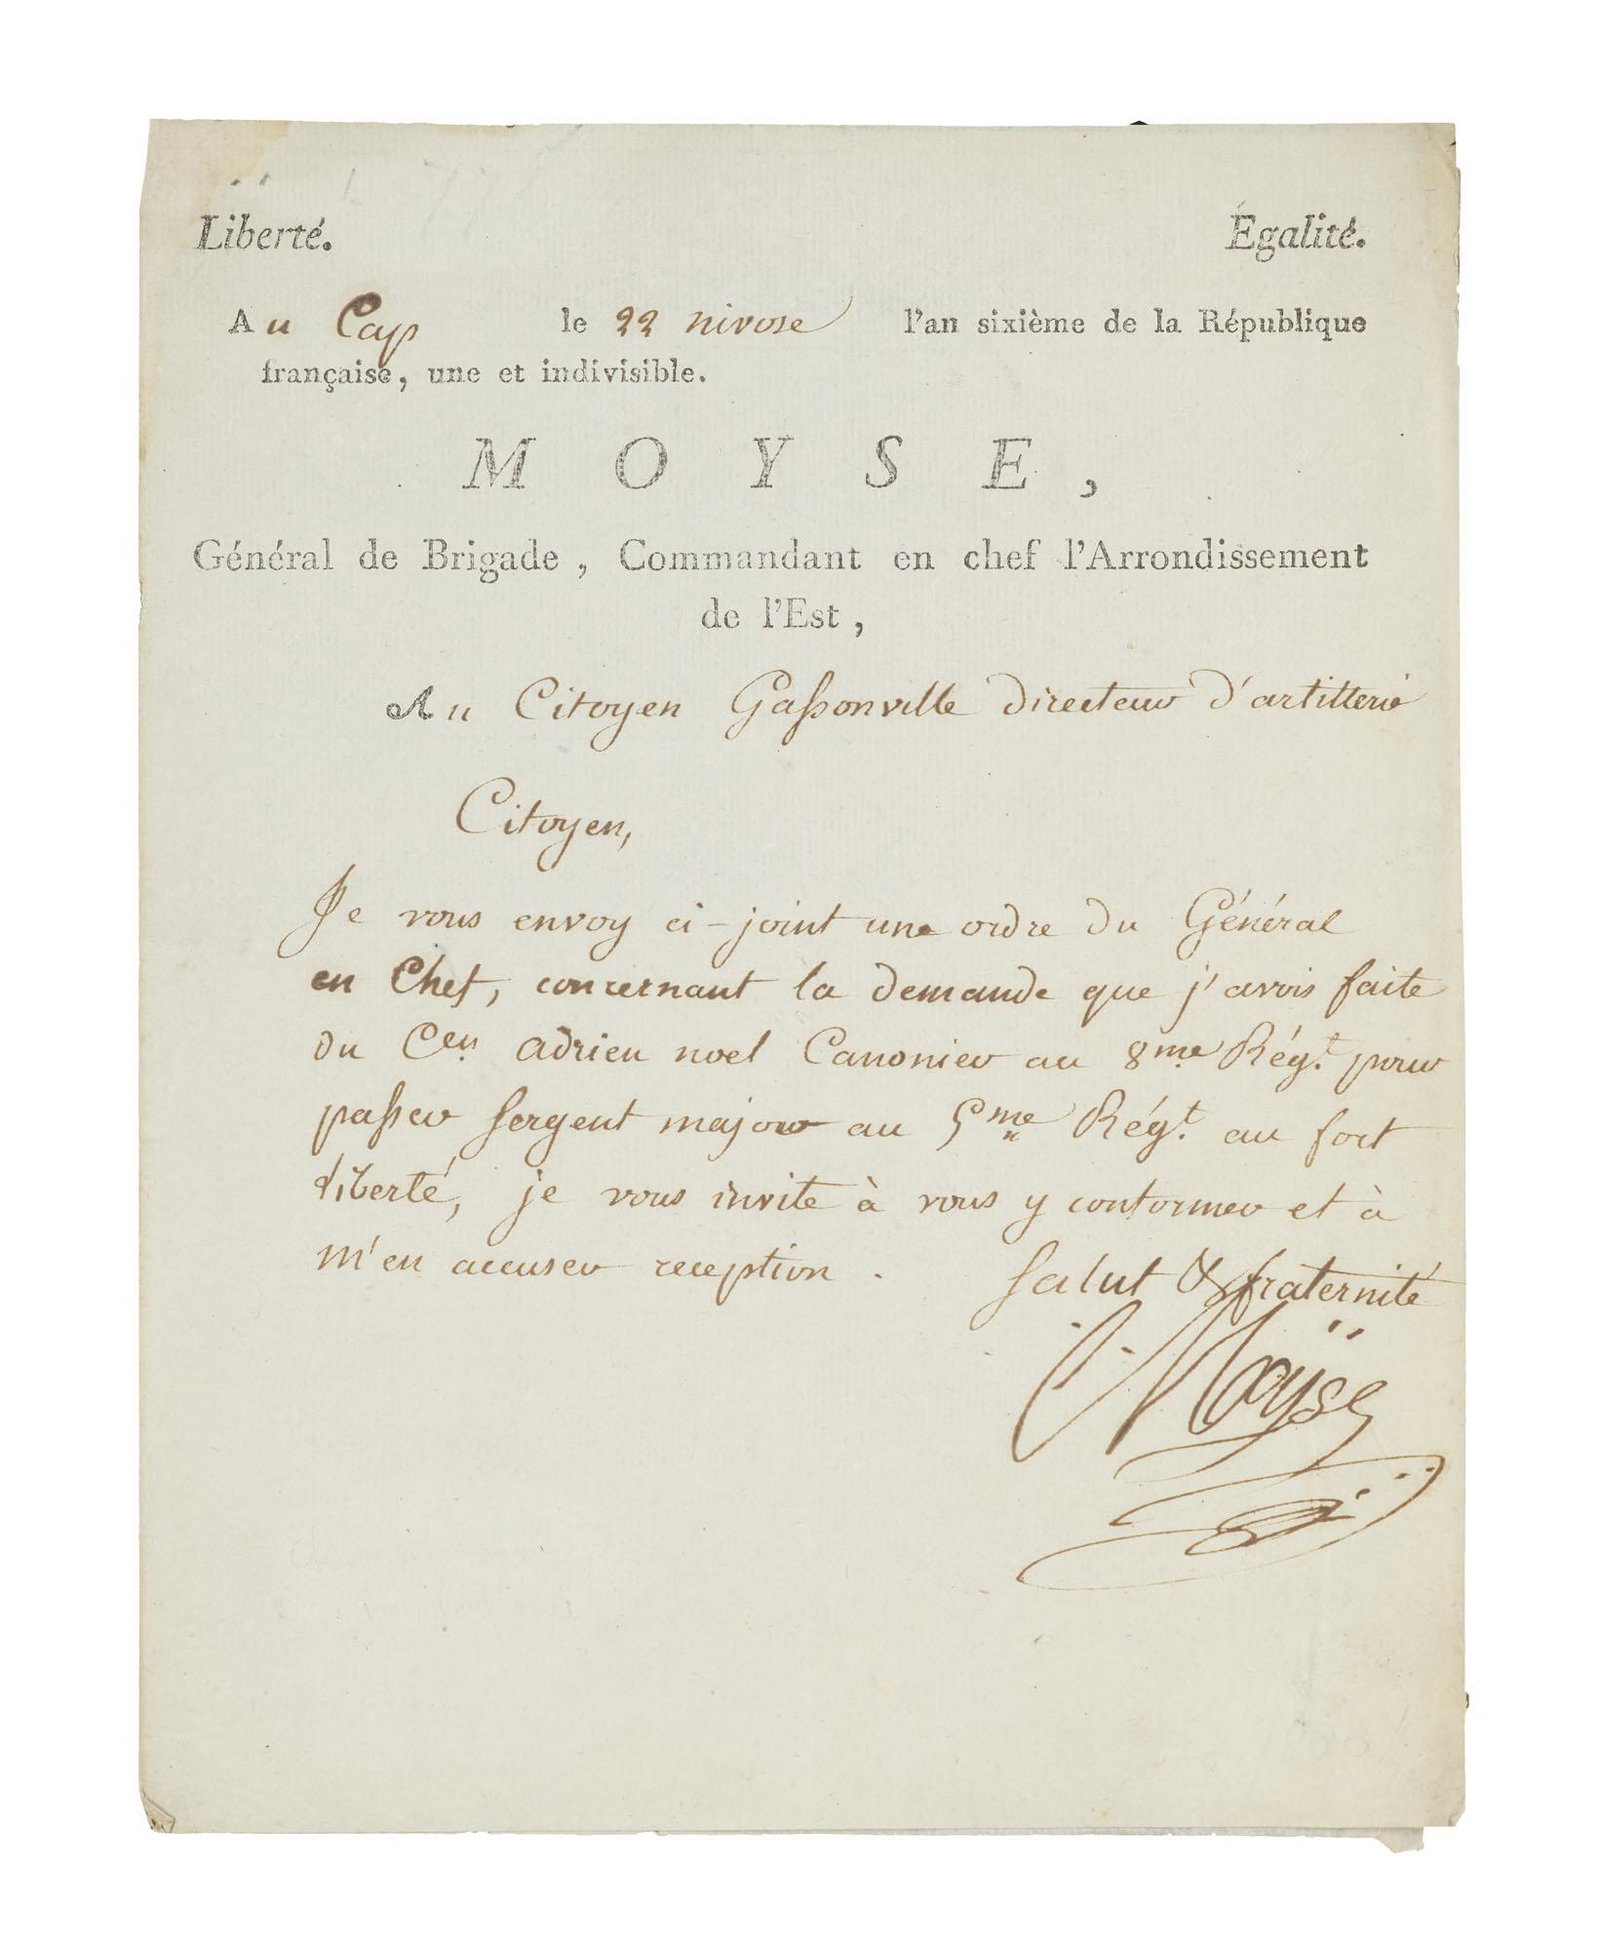 Liberté. Égalité.
Au Cap le 22 nivose l'an sixième de la République
française, une et indivisible.
MOYSE,
Général de Brigade, Commandant en chef l'Arrondissement
de l'Est,
Au Citoyen Gassonville directeur d'artillerie
Citoyen,
Je vous envoy ci-joint une ordre du Général
en Chef, concernant la demande que j'avois faite
du Cen. adrien noel Canonier au 8me. Régt. pour
passer sergent major au 5me Régt. au fort
liberté, je vous invite à vous y conformer et à
m'en accuser reception.
Salut & fraternité
Moÿse